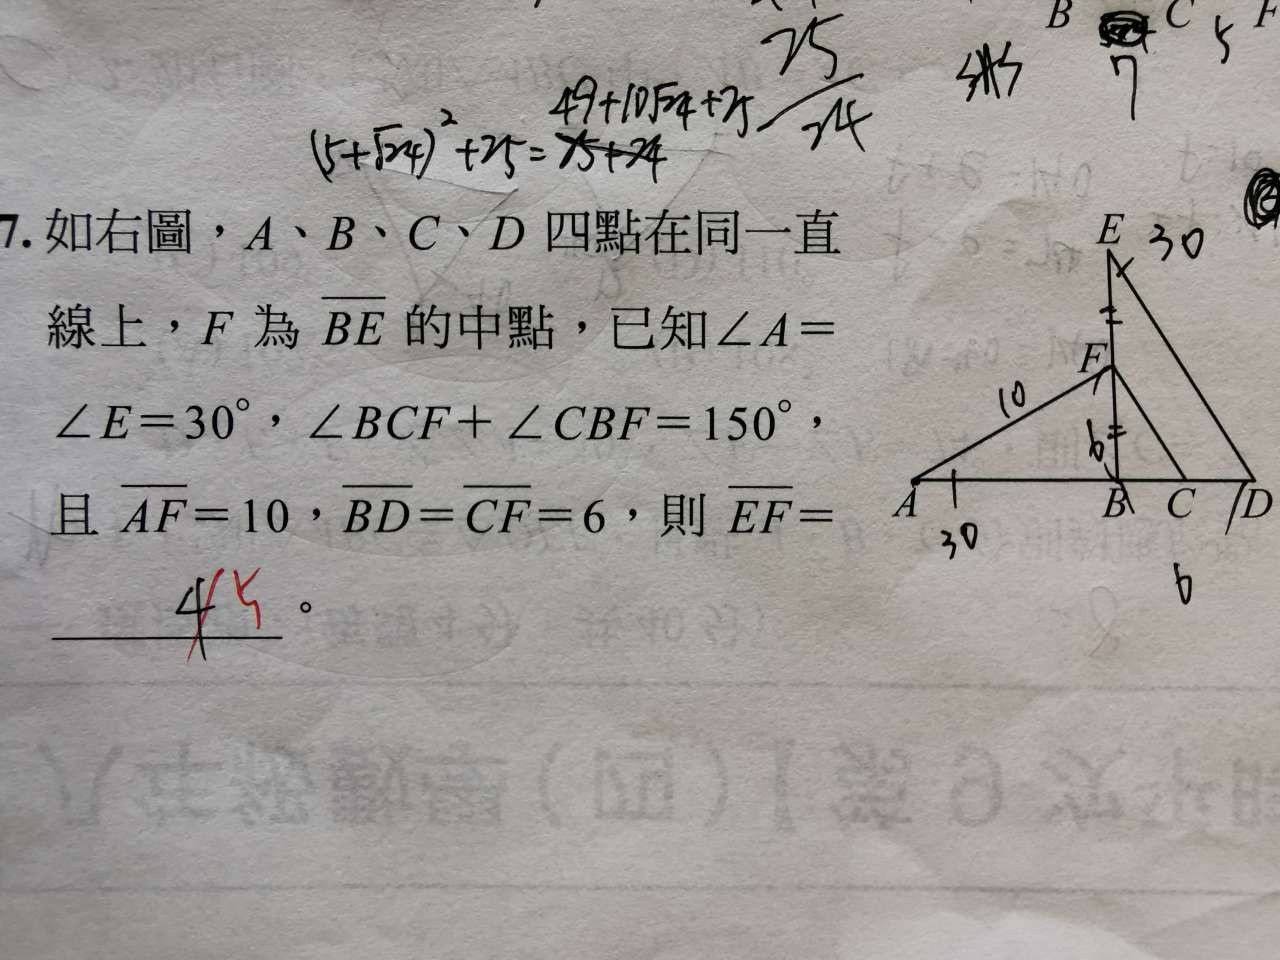 B C 5 F
7
25
24
49+10√24+25
(5+√24)²+25=75+24
7. 如右圖,A、B、C、D 四點在同一直
線上,F 為 BE 的中點,已知∠A=
∠E=30°,∠BCF+∠CBF=150°,
且 AF=10,BD=CF=6,則 EF=
4 5 。
E 30
F
10
6
A B C D
30
6